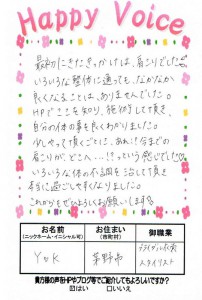 Happy Voice
最初にきたきっかけは、肩こりでした。
いろいろな整体に通っても、なかなか
良くなることは、ありませんでした。
HPでここを知り、施術して頂き、
自分の体の事を良くわかりました。
少しやって頂くごとに、あれ!?今までの
肩こりが、どこへ…!?っていう感じでした。
いろいろな体の不調を治して頂き
本当に過ごしやすくなりました。
これからもぜひよろしくお願いします。
お名前
(ニックネーム・イニシャル可)
お住まい
(市町村)
御職業
Y・K
茅野市
ブライダル衣裳
スタイリスト
貴方様の声をHPやブログ等でご紹介してもよろしいですか?
☑はい □いいえ